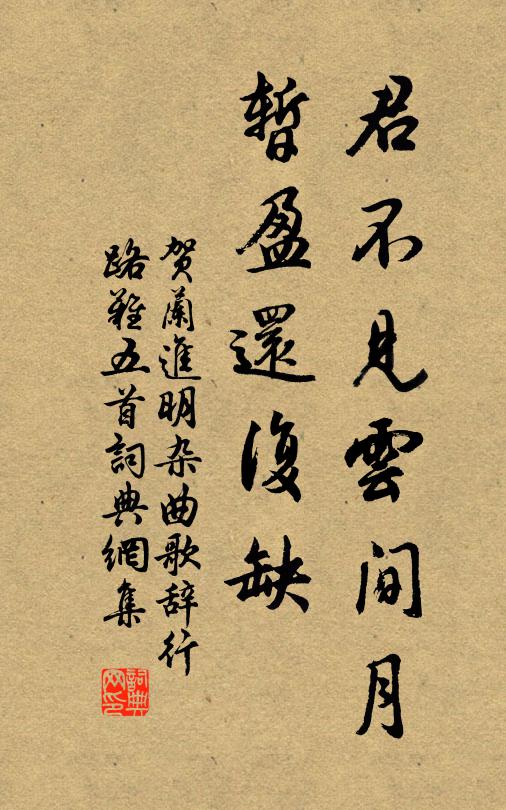 君不見雲間月
暫盈還復缺
贺蘭進明杂曲歌辞行
路難五首詞典網集
詞典
网印